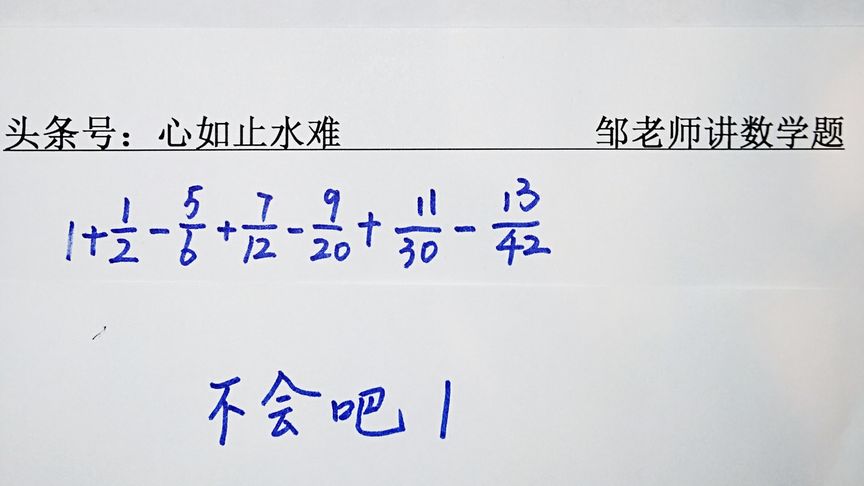 头条号：心如止水难 邹老师讲数学题
1+1/2-5/6+7/12-9/20+11/30-13/42
不会吧！